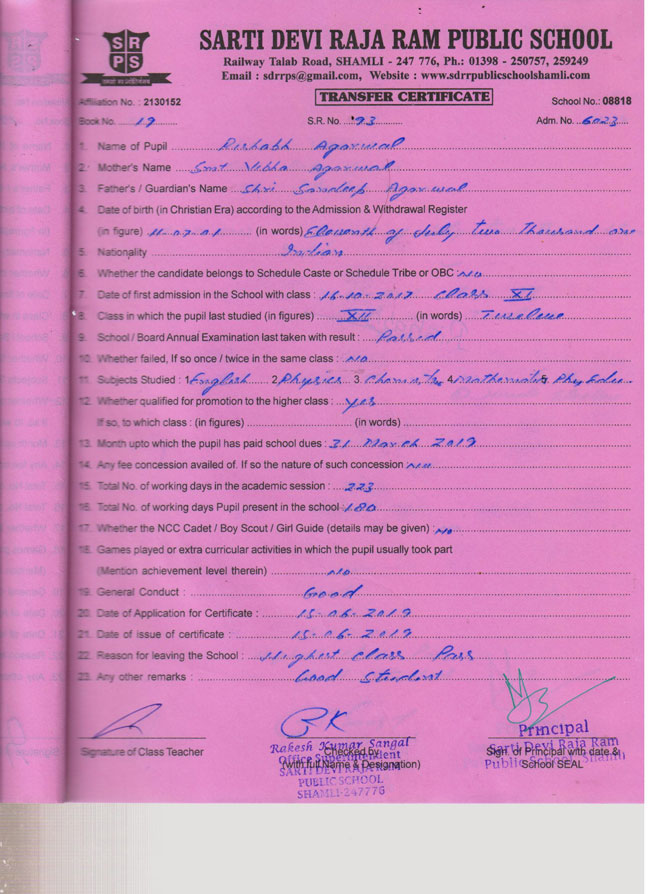 S R
P S
SARTI DEVI RAJA RAM PUBLIC SCHOOL
Railway Talab Road, SHAMLI - 247 776, Ph.: 01398 - 250757, 259249
Email : sdrrps@gmail.com, Website : www.sdrrpublicschoolshamli.com
TRANSFER CERTIFICATE
Affiliation No. : 2130152 School No.: 08818
Book No. 19 S.R. No. 93 Adm. No. 6023
1. Name of Pupil Rishabh Agarwal
2. Mother's Name Smt Vibha Agarwal
3. Father's / Guardian's Name : Shri Sandeep Agarwal
4. Date of birth (in Christian Era) according to the Admission & Withdrawal Register
(in figure) 11-07-01 (in words) Eleventh of July two Thousand one
5. Nationality Indian
6. Whether the candidate belongs to Schedule Caste or Schedule Tribe or OBC No
7. Date of first admission in the School with class : 16-10-2017 Class XI
8. Class in which the pupil last studied (in figures) XII (in words) Twelve
9. School / Board Annual Examination last taken with result : Passed
10. Whether failed, If so once / twice in the same class : No
11. Subjects Studied : 1 English 2 Physics 3. Chemistry 4 Mathematics 5 Phy Edu.
12. Whether qualified for promotion to the higher class : yes
If so, to which class : (in figures) (in words)
13. Month upto which the pupil has paid school dues : 31 March 2019
14. Any fee concession availed of. If so the nature of such concession No
15. Total No. of working days in the academic session : 223
16. Total No. of working days Pupil present in the school 180
17. Whether the NCC Cadet / Boy Scout / Girl Guide (details may be given) : No
18. Games played or extra curricular activities in which the pupil usually took part
(Mention achievement level therein) No
19. General Conduct : Good
20. Date of Application for Certificate : 15-06-2019
21. Date of issue of certificate : 15-06-2019
22. Reason for leaving the School : Highest Class Pass
23. Any other remarks : Good Student
Principal
Rakesh Kumar Sangal
Sarti Devi Raja Ram
Signature of Class Teacher Checked by Sign. of Principal with date &
Office Superintendent
Public School Shamli
(with full Name & Designation) School SEAL
SARTI DEVI RAJA RAM
PUBLIC SCHOOL
SHAMLI-247776